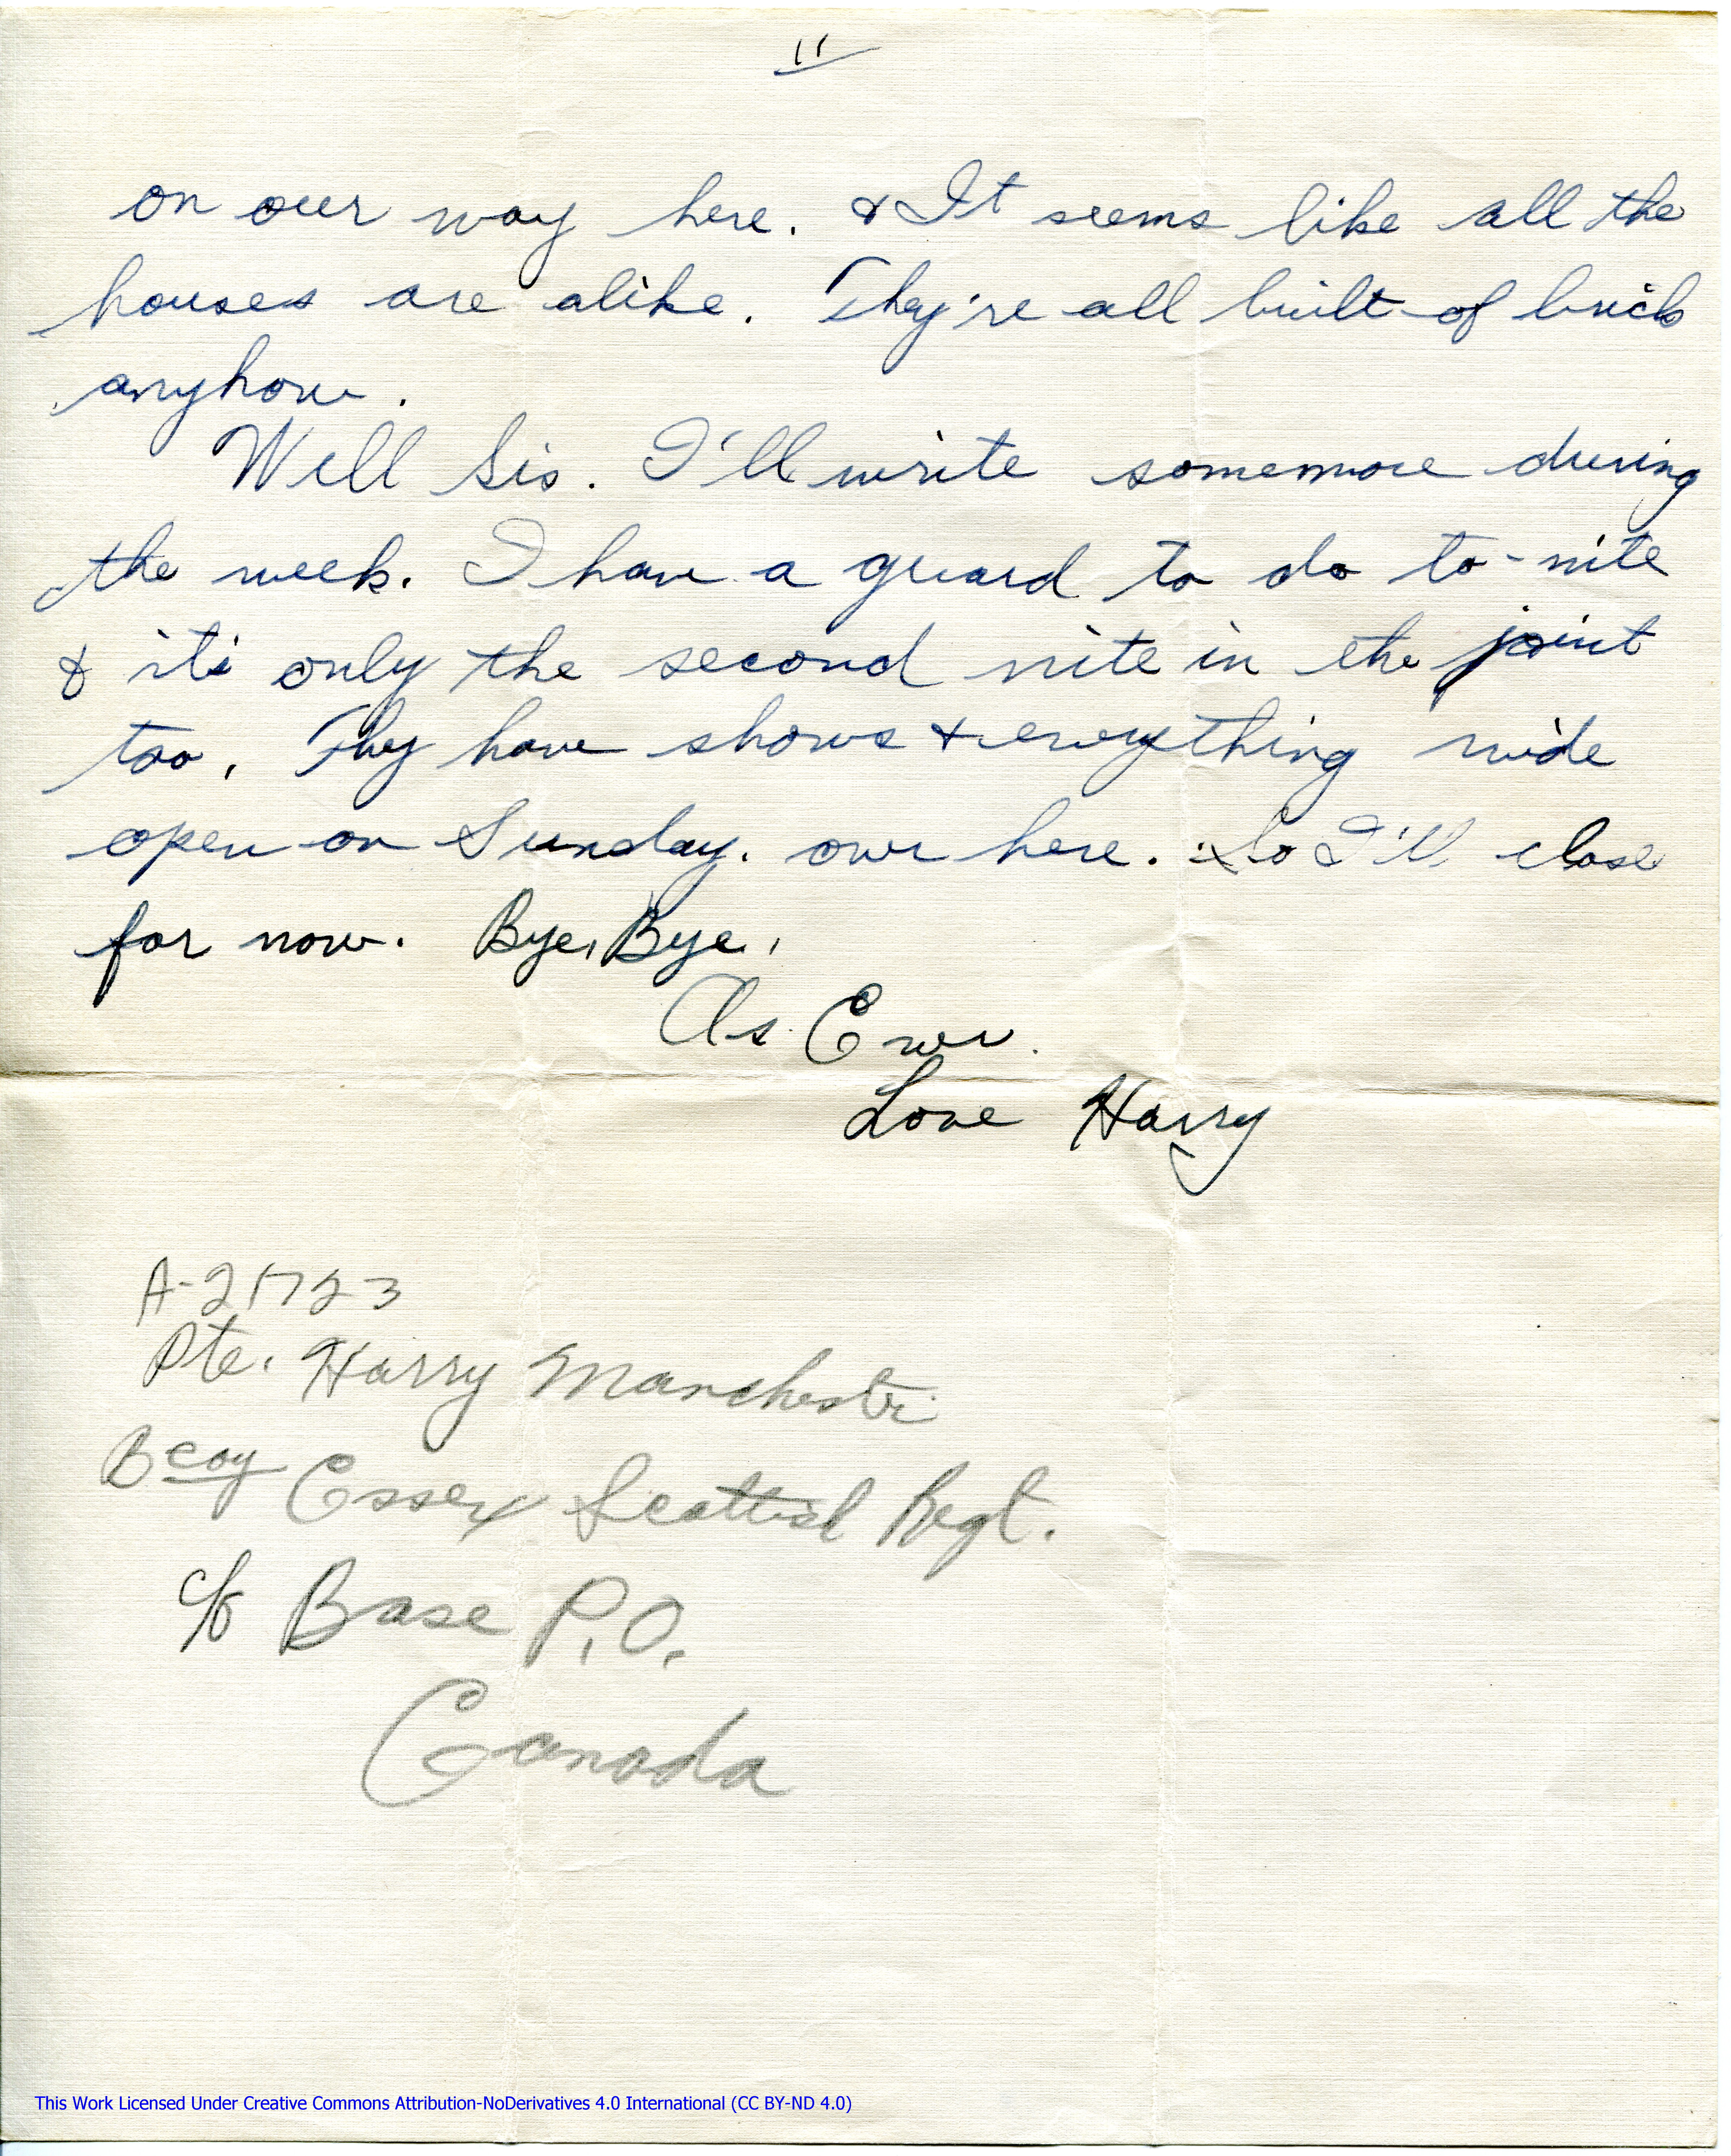 11
on our way here. & It seems like all the
houses are alike. They're all built of brick
anyhow.
Well Sis. I'll write somemore during
the week. I have a guard to do to-nite
& it's only the second nite in the joint
too. They have shows & everything wide
open on Sunday. over here. So I'll close
for now. Bye, Bye.
As Ever.
Love Harry
A-21723
Pte. Harry Manchester
B coy Essex Scottish Regt.
c/o Base P.O.
Canada
This Work Licensed Under Creative Commons Attribution-NoDerivatives 4.0 International (CC BY-ND 4.0)